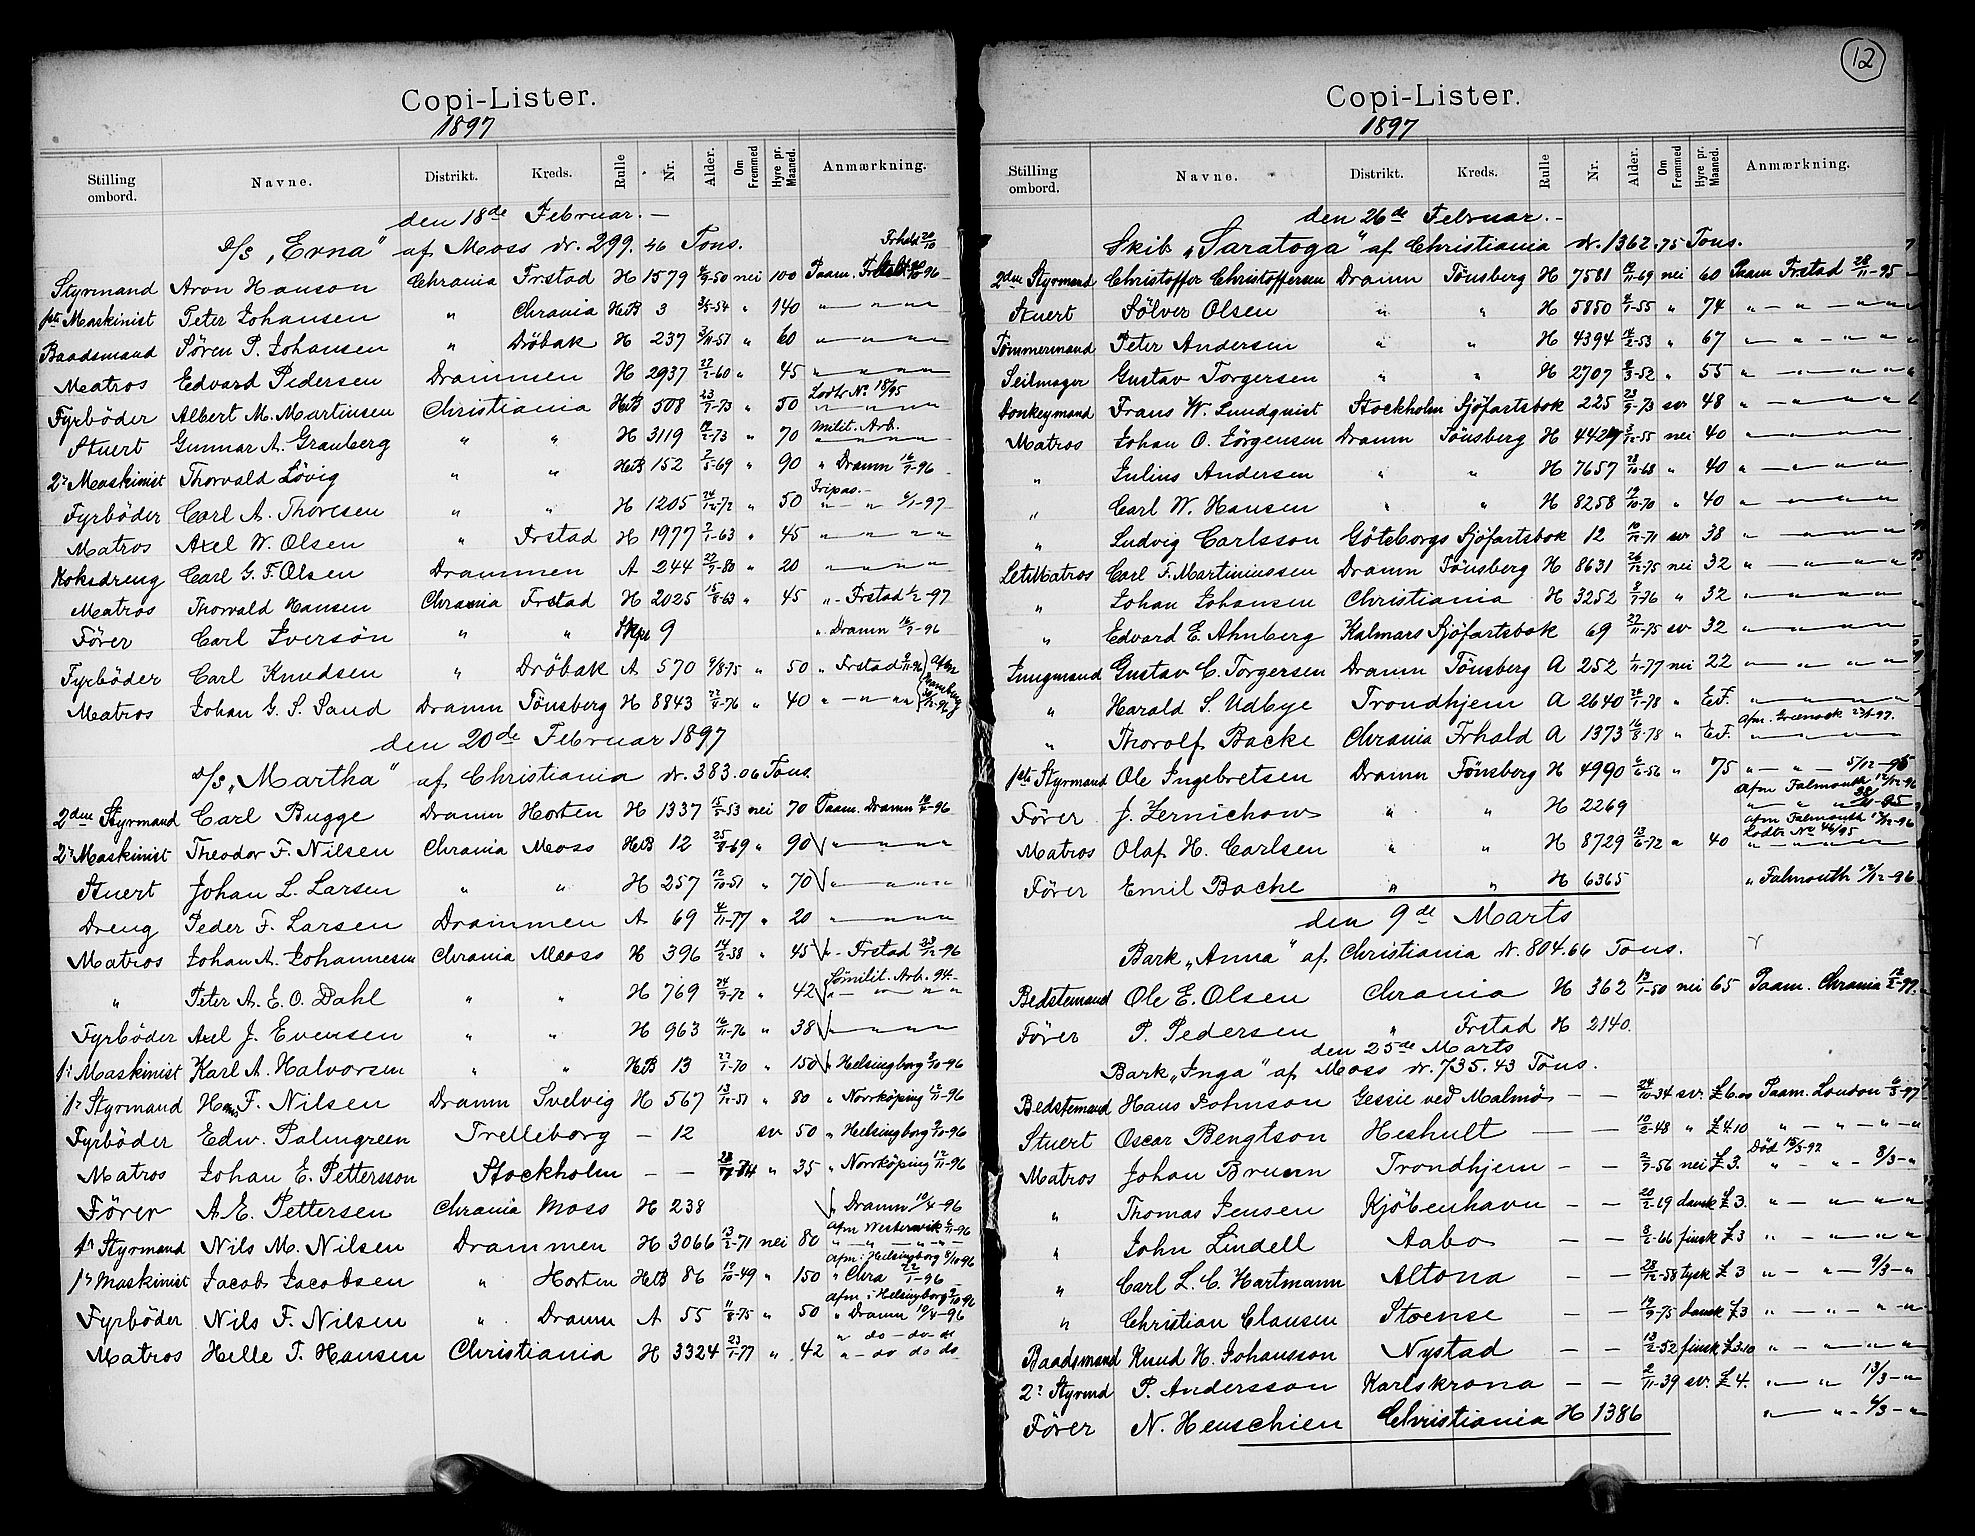 Copi-Lister.
1897
Stilling ombord. Navne. Distrikt. Kreds. Rulle Nr. Alder. Om Fremmed Hyre pr. Maaned. Anmærkning.
den 18de Februar. —
D/S „Erna" af Moss dr. 299.46 Tons.
Styrmand Aron Hanson Chrania Frstad H 1579 nei 100 Paam.
1ste Maskinist Peter Johansen " Chrania HB 3 3/5-54 " 140 " — " — "
Baadsmand Sören P. Johansen " Dröbak H 237 3/11-51 " 60 " — " — " — "
Matros Edvard Pedersen Drammen H 2937 22/2-60 " 45 " — " — " — "
Lodts No 18/95
Fyrböder Albert M. Martinsen Christiania HB 508 23/7-73 " 50 " — " — " — "
Milit. Arb.
Stuert Gunnar A. Granberg " " H 3119 19/2-73 " 70 " — " — " — "
2r Maskinist Thorvald Lövig " " HB 152 2/5-69 " 90 " Dramn 16/7-96
Fripas. —
Fyrböder Carl A. Thoresen " " H 1205 24/12-72 " 50 " — " 6/1-97
Matros Axel W. Olsen " Frstad H 1977 2/1-63 " 45 " — " — " — "
Koksdreng Carl G. F. Olsen Drammen A 244 22/7-80 " 20 " — " — " — "
Matros Thorvald Hansen Chrania Frstad H 2025 15/8-63 " 45 " - Frstad 1/2-97
Förer Carl Iversön " " Skpr 9 " Dramn 16/7-96
Fyrböder Carl Knudsen " Dröbak A 570 9/8-75 " 50 " Frstad 9/11-96
Matros Johan G. S. Sand Dramn Tönsberg H 8843 22/4-76 " 40 " — " — "
den 20de Februar 1897
D/S „Martha" af Christiania dr. 383.06 Tons.
2den Styrmand Carl Bugge Dramn Horten H 1337 15/5-53 nei 70 Paam. Dramn
2r Maskinist Theodor F. Nilsen Chrania Moss HB 12 25/9-69 " 90 " — " — " — "
Stuert Johan L. Larsen " " H 257 12/10-51 " 70 " — " — " — "
Dreng Peder F. Larsen Drammen A 69 4/11-77 " 20 " — " — " — "
Matros Johan A. Johannesen Chrania Moss H 396 14/2-58 " 45 " - Frstad 23/12-96
Milit. Arb. 94 -
" Peter A. E. O. Dahl " " H 769 24/9-72 " 42 " — " — " — "
Fyrböder Axel J. Evensen " " H 963 16/11-76 " 38 " — " — " — "
1r Maskinist Karl A. Halvorsen " " HB 13 22/1-70 " 150 " Helsingborg 9/10-96
1r Styrmand Hans F. Nilsen Dramn Svelvig H 567 13/11-51 " 80 " Norrköping 12/11-96
Fyrböder Edw. Palmgreen Trelleborg — 12 sv 50 " Helsingborg 9/10-96
Matros Johan E. Pettersson Stockholm — — " 35 " Norrköping 12/11-96
Förer A. E. Pettersen Chrania Moss H 238 " Dramn 10/4-96
Afm Westervik 6/11-96
1r Styrmand Nils M. Nilsen Drammen H 3066 13/2-71 nei 80 " — " — " — "
Afm i Helsingborg 8/10-96
1r Maskinist Jacob Jacobsen " Horten HB 86 19/10-49 " 150 " Chra 22/1-96
Afm i Helsingborg 9/10-96
Fyrböder Nils F. Nilsen " Dramn A 55 11/8-75 " 50 " Dramn 10/4-96
" do - do - do
Matros Helle T. Hansen Christiania H 3324 23/1-77 " 42 " - do do do
12
Copi-Lister.
1897
Stilling ombord. Navne. Distrikt. Kreds. Rulle Nr. Alder. Om Fremmed Hyre pr. Maaned. Anmærkning.
den 26de Februar. —
Skib „Saratoga" af Christiania dr. 1362.75 Tons.
2den Styrmand Christoffer Christoffersen Dramn Tönsberg H 7581 nei 60 Paam Frstad 28/11-95
Stuert Sölver Olsen " " H 5850 " 74 " — " — " — "
Tömmermand Peter Andersen " " H 4394 14/2-53 " 67 " — " — " — "
Seilmager Gustav Torgersen " " H 2707 " 55 " — " — " — "
Donkeymand Frans W. Lundquist Stockholm Sjöfartsbok 225 23/9-73 sv 48 " — " — " — "
Matros Johan O. Jörgensen Dramn Tönsberg H 4427 nei 40 " — " — " — "
" Julius Andersen " " H 7657 28/10-68 " 40 " — " — " — "
" Carl W. Hansen " " H 8258 19/10-70 " 40 " — " — " — "
" Ludvig Carlsson Göteborgs Sjöfartsbok 12 sv 38 " — " — " — "
LetMatros Carl F. Martiniussen Dramn Tönsberg H 8631 26/12-75 nei 32 " — " — " — "
" Johan Johansen Christiania H 3252 " 32 " — " — " — "
" Edvard E. Ahnberg Kalmars Sjöfartsbok 69 27/11-75 sv 32 " — " — " — "
Jungmand Gustav C. Torgersen Dramn Tönsberg A 252 1/11-77 nei 22 " — " — " — "
" Harald S. Udbye Trondhjem A 2640 24/1-78 " E.F. " — " — " — "
Afm. Greenock 23/1-97.
" Thorolf Backe Chrania Frhald A 1373 16/8-78 " E.F. " — " — " — "
1ste Styrmand Ole Ingebretsen Dramn Tönsberg H 4990 6/6-56 " 75 " — " — 5/12-95
Afm Falmouth 12/12-96
Förer J. Zernichow " " H 2269 " — " — "
Afm Falmouth 12/12-96
Lodts No 46/95
Matros Olaf H. Carlsen " " H 8729 13/6-72 " 40 " — " — " — "
Förer Emil Backe " " H 6365 " Falmouth 12/12-96
den 9de Marts
Bark „Anna" af Christiania dr. 804.66 Tons.
Bedstemand Ole E. Olsen Chrania H 362 13/1-50 nei 65 Paam. Chrania
Förer P. Pedersen " Frstad H 2140.
den 25de Marts
Bark „Inga" af Moss dr. 735.43 Tons.
Bedstemand Hans Johnson Gessie ved Malmö — — 24/10-34 sv. £6.00 Paam. London 6/3-97
Stuert Oscar Bengtson Heshult — — 12/2-48 " £4.10 " — " — " — "
Död 15/3-97
Matros Johan Bruun Trondhjem — — 2/9-56 nei £3. " — " - 8/3 - "
" Thomas Jensen Kjöbenhavn — — 20/2-19 dansk £3. " — " — " — "
" John Lindell Aabo — — 8/2-66 finsk £3 " — " — " — "
" Carl L. C. Hartmann Altona — — 28/12-58 tysk £3 " — " - 9/3 - "
" Christian Clausen Stoense — — 19/9-75 dansk £3 " — " — " — "
Baadsmand Knud H. Johansson Nystad — — 13/2-52 finsk £3.10 " — " — " — "
2r Styrmd P. Andersson Karlskrona — — 2/11-39 sv. £4. " — " 13/3 - "
Förer N. Henschien Christiania H 1386 " — " - 6/3 - "